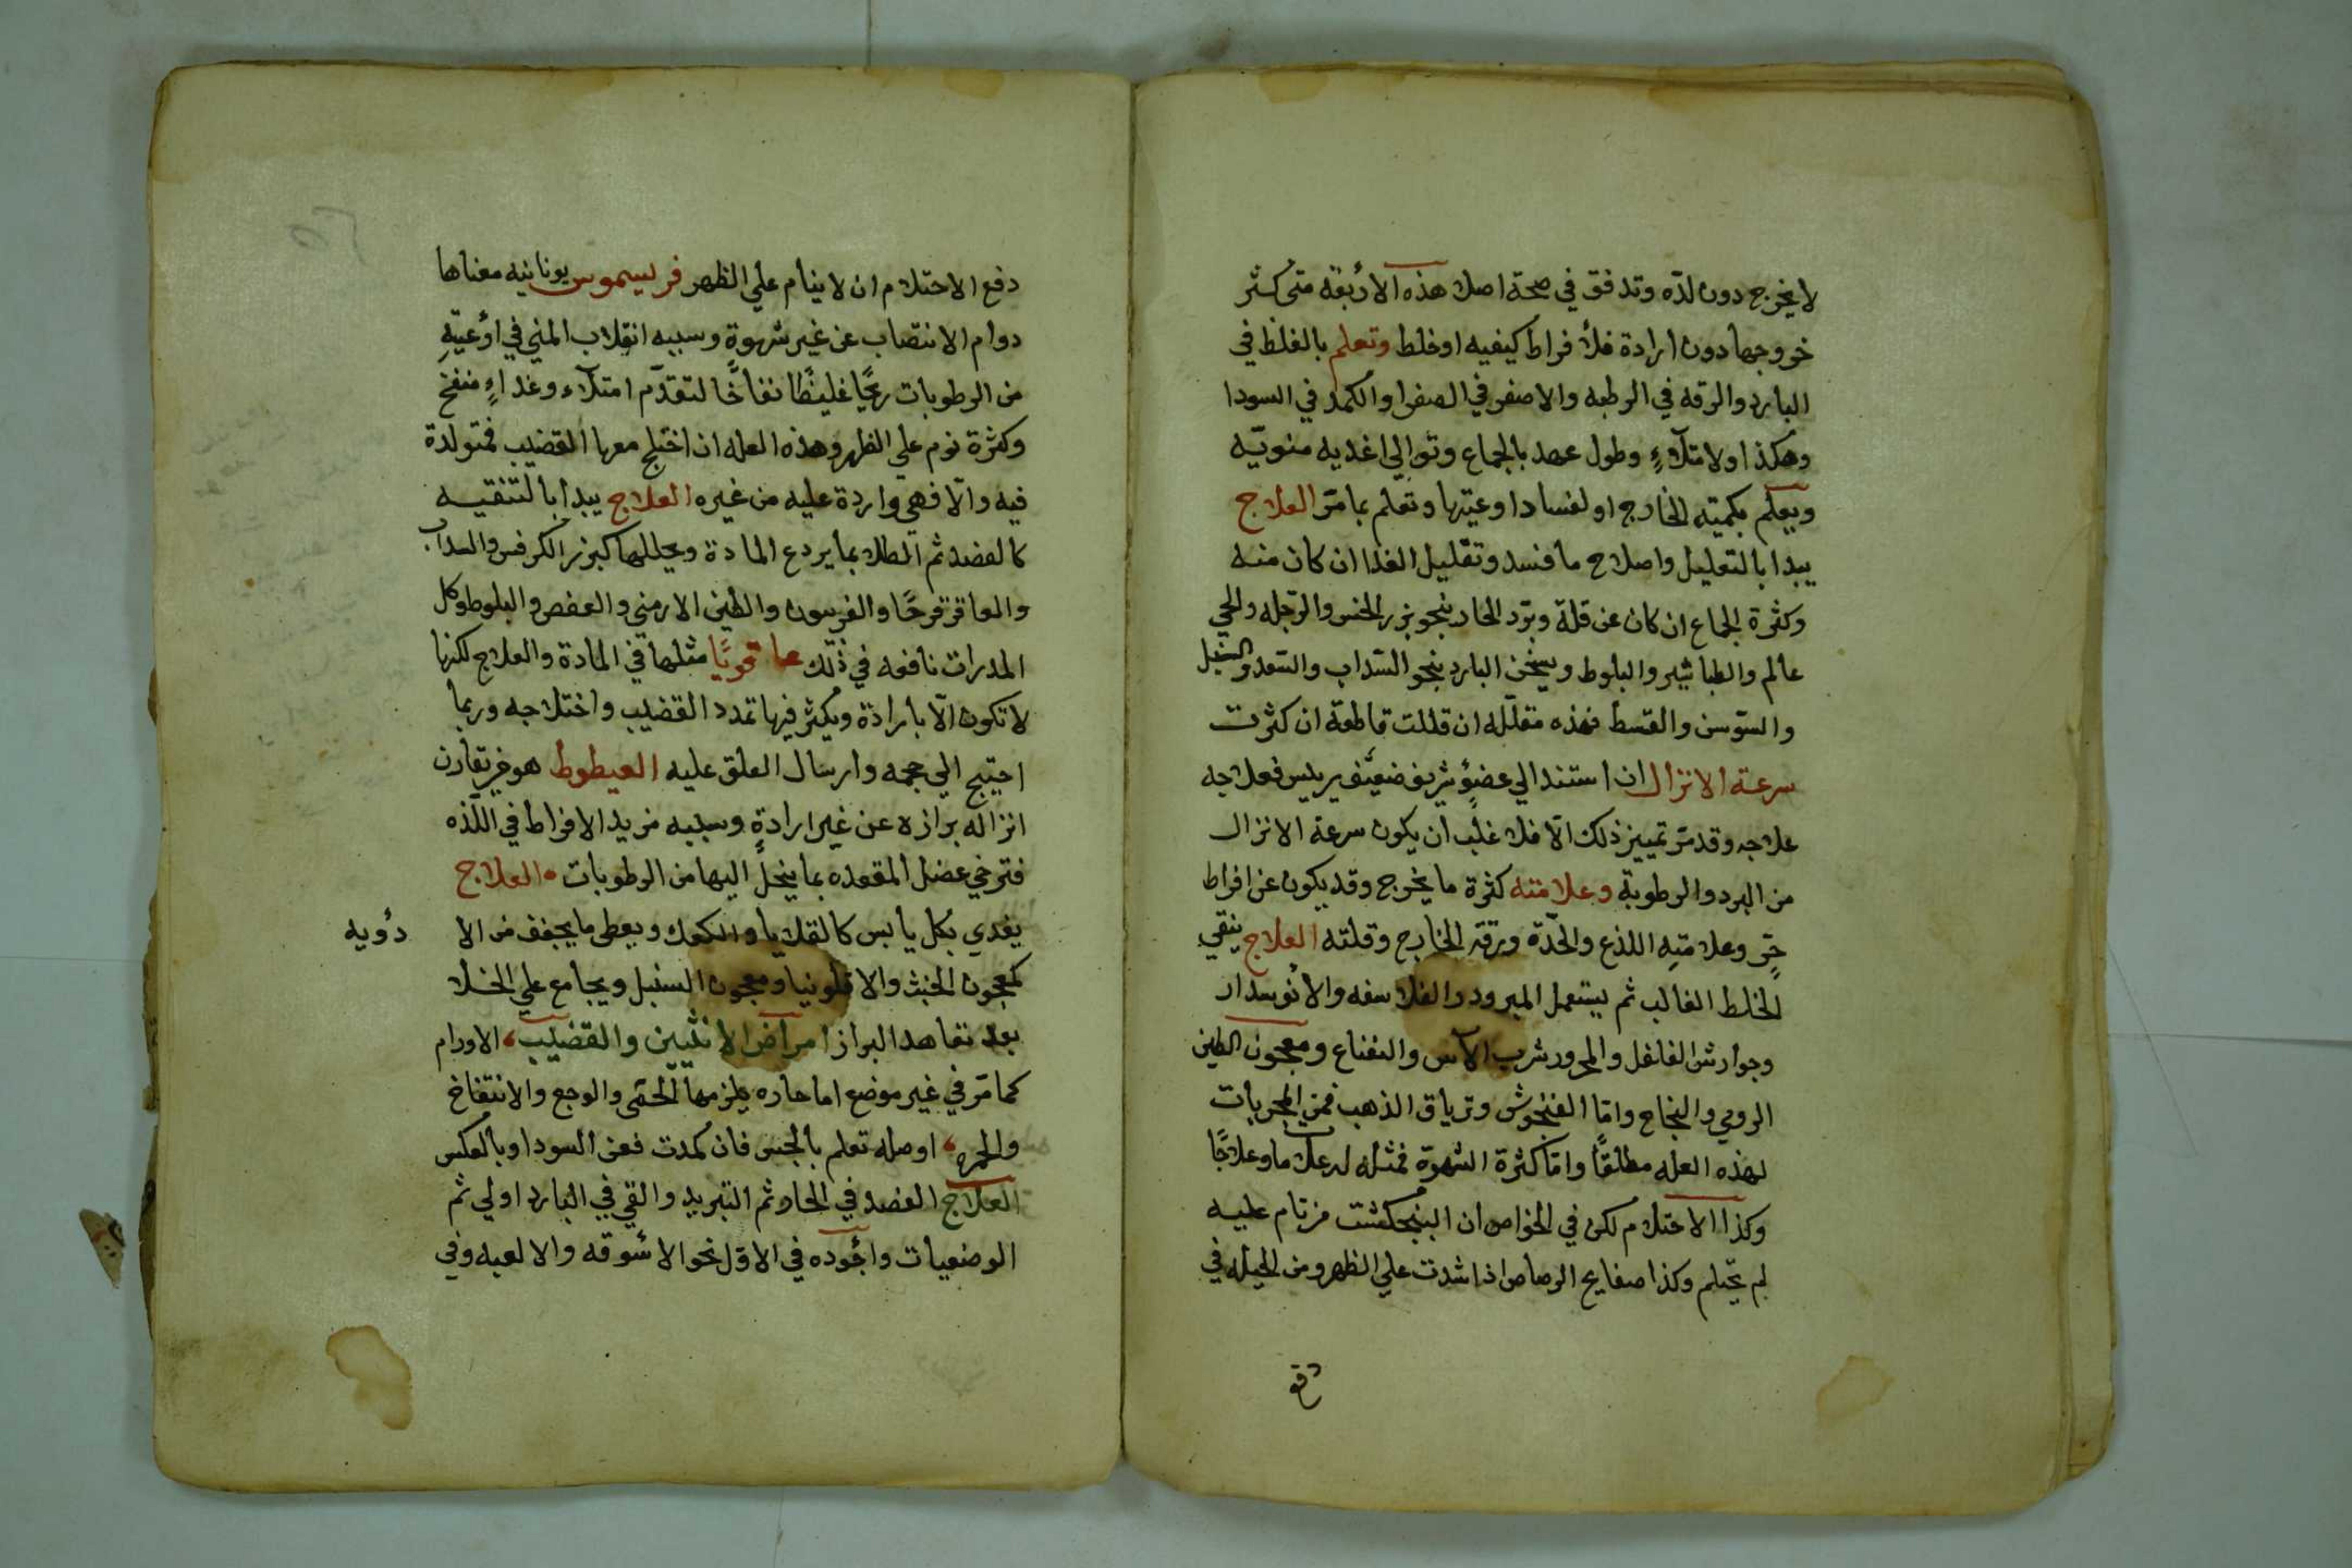 لا يخرج دون لذه وتدفق في صحة اصلا هذه الأربعة متى كثر
خروجها دون ارادة فلأ فراط كيفيه او خلط وتعلم بالغلظ في
البارد والرقه في الرطبه والاصفر في الصفرا والكمد في السودا
وهكذا ولامتلآءٍ وطول عهد بالجماع وتوالي اغديه منويّه
ويعلم بكميته الخارج او لفساد اوعيتها وتعلم بما مرّ العلاج
يبدا بالتعليل واصلاح ما فسد وتقليل الغذا ان كان منه
وكثرة الجماع ان كان عن قلة وبرّد الحاد بنحو بزر الخس والرّجله والحي
عالم والطباشير والبلوط ويسخن البارد بنحو السّداب والسّعد والسنبل
والسّوسن والقسط فهذه مقلّله ان قللت قاطعة ان كثرت
سرعة الانزال ان استند الي عضوٍ شريف ضعيف يرييس فعلاجه
علاجه وقد مرّ تمييز ذلك الّا فلا غلب ان يكون سرعة الانزال
من البرد والرطوبة وعلامته كثرة ما يخرج وقد يكون عن افراط
حرّ وعلامتِه اللذع والحدّة ورقته الخارج وقلته العلاج ينقي
الخلط الغالب ثم يستعمل المبرود والفلاسفه والأنوسدار
وجوارش الفلفل والمحرور شرب الآس والنعناع ومعجون الطين
الرومي والنجاح وامّا الفنجوش وترياق الذهب فمن المجربات
لهذه العله مطلقًا وامّا كثرة الشهوة فمثله له علاما وعلاجًا
وكذا الاحتلام لكن في الخواص ان البنجكشت من نام عليه
لم يحتلم وكذا صفايح الرصاص اذا شدت علي الظهر ومن الحيله في
دفع
دفع الاحتلام ان لا ينام علي الظهر فريسموس يونانيه معناها
دوام الانتصاب عن غير شهوة وسببه انقلاب المني في اوعيتِهِ
من الرطوبات ريحًا غليظًا نفاخًا لتقدّم امتلآء وغداءٍ منفخ
وكثرة نوم علي الظهر وهذه العله ان اختلج معها القضيب فمتولدة
فيه والّا فهي واردة عليه من غيره العلاج يبدا بالتنقيه
كالفصد ثم الطلا بما يردع المادة ويحللها كبزر الكرفس والسداب
والعاقرقرحًا والفربيون والطين الارمني والعفص والبلوط وكل
المدرات نافعه في ذلك عاقويًا مثلها في المادة والعلاج لكنها
لا تكون الّا بارادة ويكثر فيها تمدد القضيب واختلاجه وربما
احتيج الي حجمه وارسال العلق عليه العيطوط هو من يقارن
انزاله برازه عن غير ارادةٍ وسببه مزيد الافراط في اللّذه
فترخي عضل المقعده بما ينحلّ اليها من الرطوبات العلاج
يغدي بكل يابس كالقلايا والكعك ويعطى ما يجفف من الا
دويه
كمعجون الخبث والافلونيا ومعجون السنبل ويجامع علي الخلا
بعد تعاهد البراز امراض الانثيين والقضيب الاورام
كما مرّ في غير موضع اما حاره يلزمها الحمّى والوجع والانتفاخ
والحمره او صله تعلم بالجس فان كمدت فعن السودا وبالعكس
العلاج الفصد في الحار ثم التبريد والقي في البارد اولي ثم
الوضعيات واجوده في الاوّل نحو الاسوقه والالعبه وفي